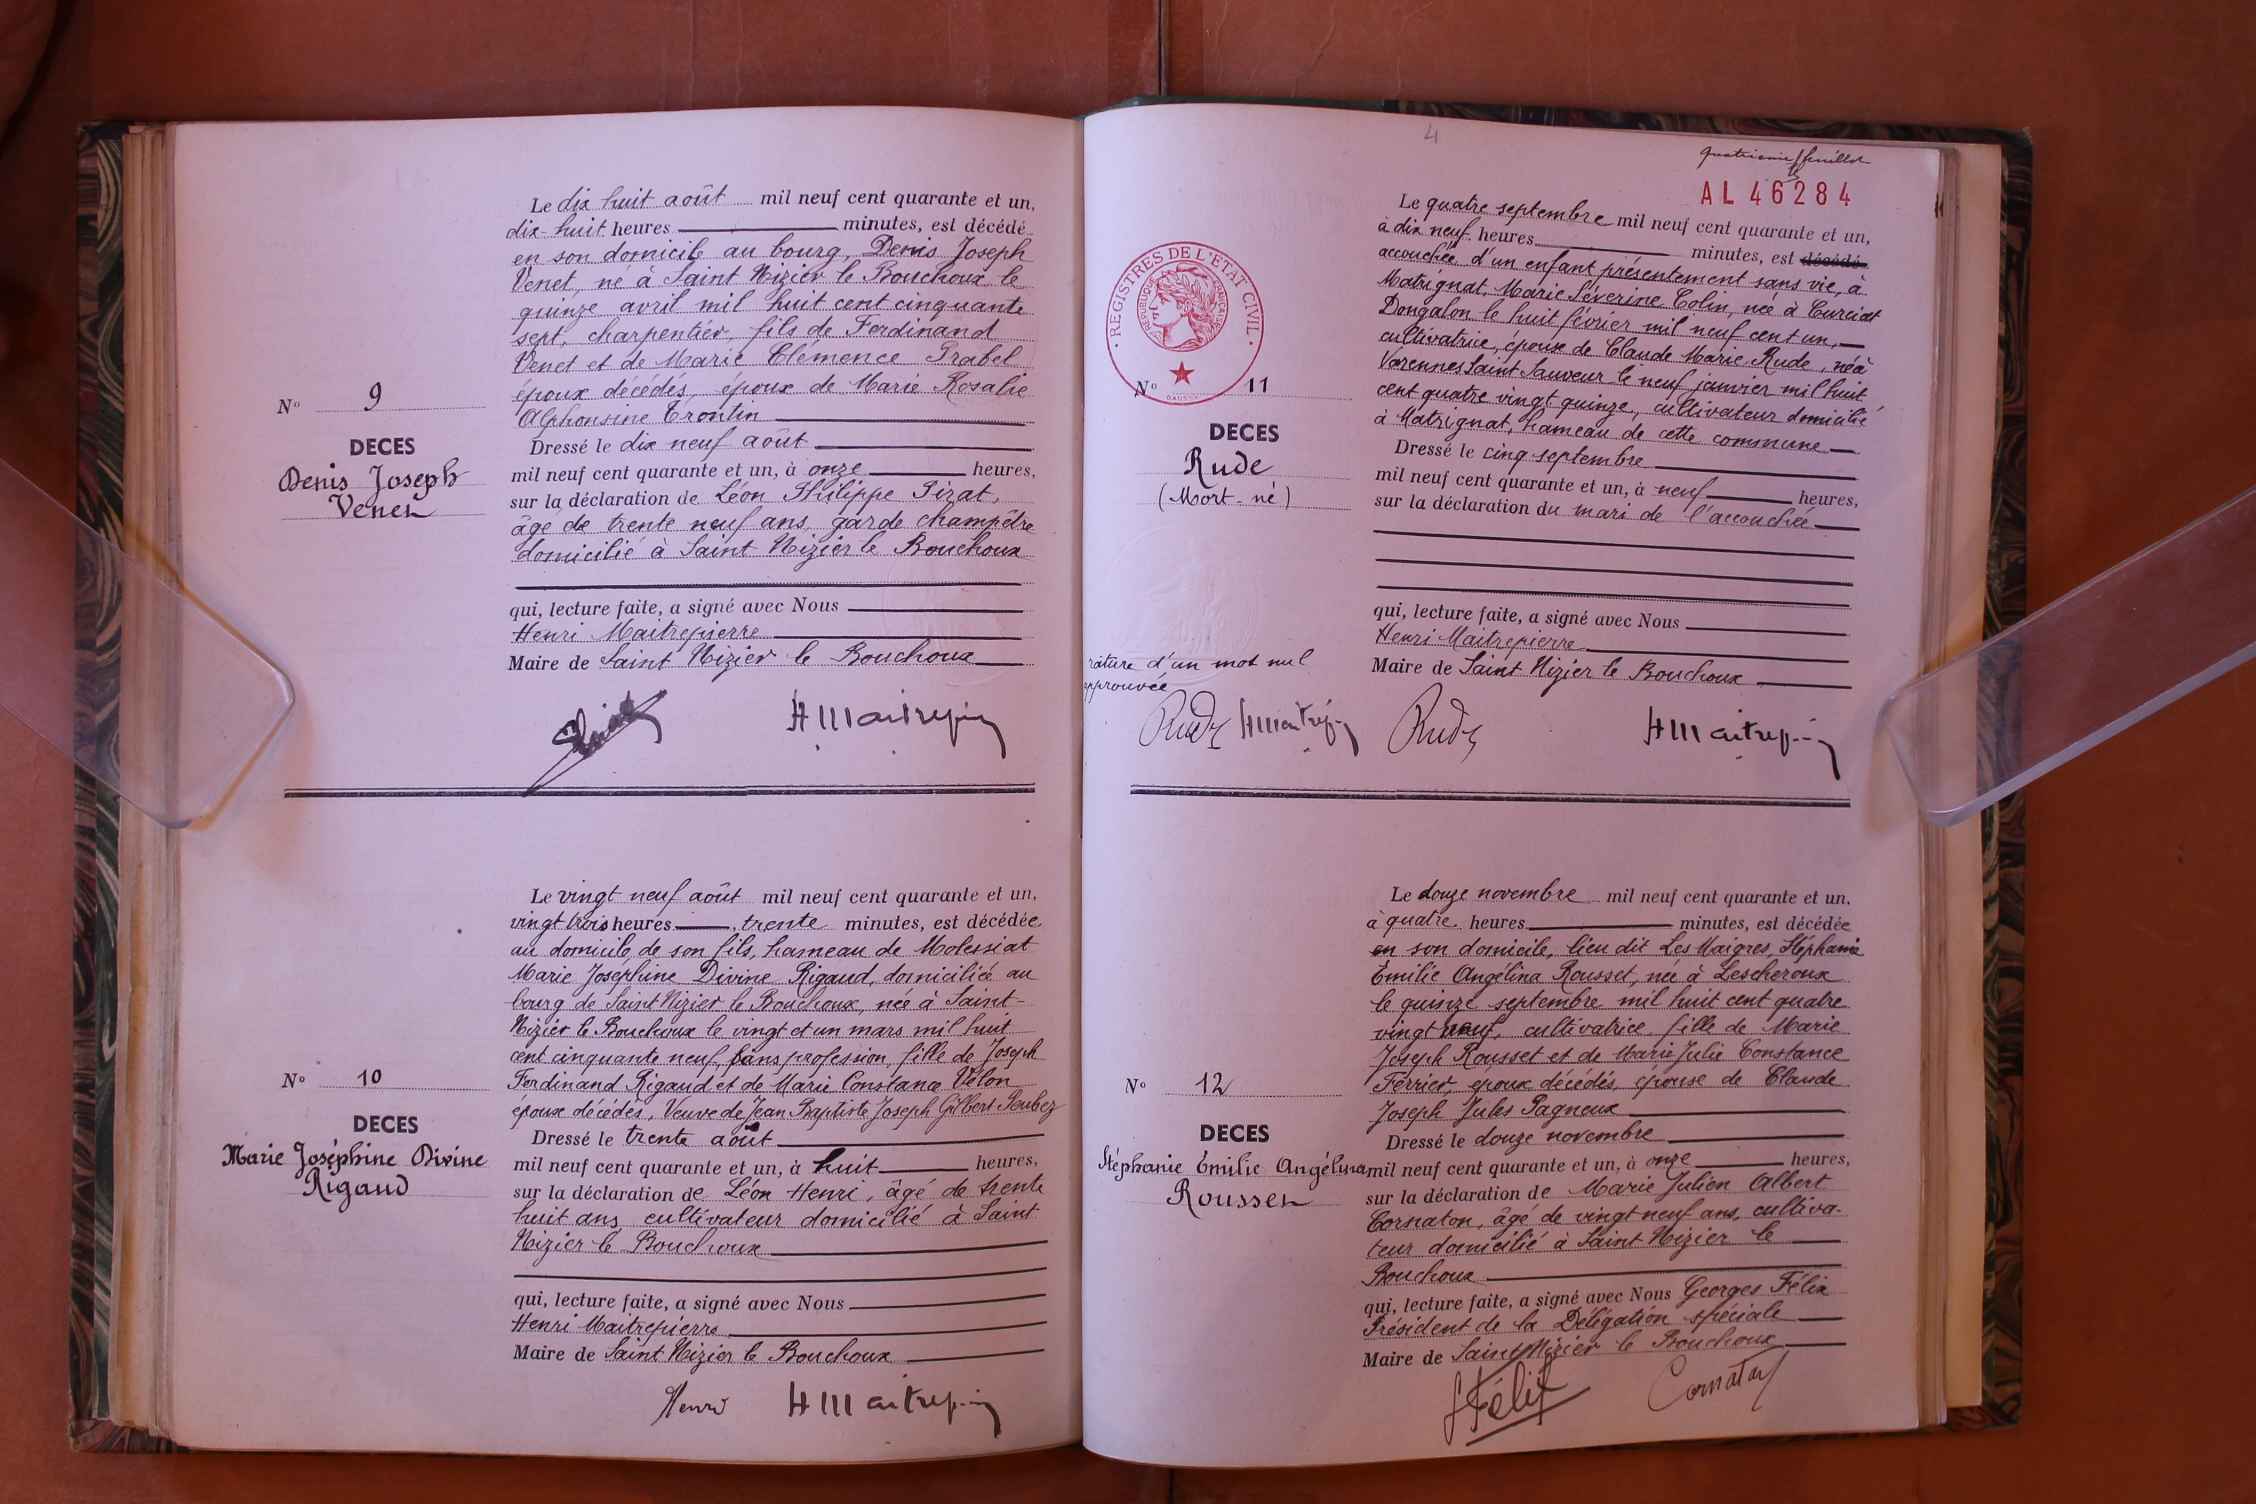 Le dix huit août mil neuf cent quarante et un,
dix-huit heures minutes, est décédé
en son domicile au bourg, Denis Joseph
Venet, né à Saint Nizier le Bouchoux le
quinze avril mil huit cent cinquante
sept, charpentier, fils de Ferdinand
Venet et de Marie Clémence Prabel
époux décédés, époux de Marie Rosalie
Alphonsine Trontin
N° 9
DECES
Denis Joseph
Venet
Dressé le dix neuf août
mil neuf cent quarante et un, à onze heures,
sur la déclaration de Léon Philippe Pirat,
âgé de trente neuf ans, garde champêtre
domicilié à Saint Nizier le Bouchoux
qui, lecture faite, a signé avec Nous
Henri Maitrepierre
Maire de Saint Nizier le Bouchoux
HMaitrepierre
Le vingt neuf août mil neuf cent quarante et un,
vingt trois heures, trente minutes, est décédée
au domicile de son fils, hameau de Molessiat
Marie Joséphine Divine Rigaud, domiciliée au
bourg de Saint Nizier le Bouchoux, née à Saint-
Nizier le Bouchoux le vingt et un mars mil huit
cent cinquante neuf, sans profession, fille de Joseph
Ferdinand Rigaud et de Marie Constance Velon
époux décédés, Veuve de Jean Baptiste Joseph Gilbert
N° 10
DECES
Marie Joséphine Divine
Rigaud
Dressé le trente août
mil neuf cent quarante et un, à huit heures,
sur la déclaration de Léon Henri, âgé de trente
huit ans, cultivateur domicilié à Saint
Nizier le Bouchoux
qui, lecture faite, a signé avec Nous
Henri Maitrepierre
Maire de Saint Nizier le Bouchoux
Henri HMaitrepierre
4
quatrième feuillet
AL 46284
Le quatre septembre mil neuf cent quarante et un,
à dix neuf heures minutes, est décédé
accouchée d'un enfant présentement sans vie, à
Matrignat, Marie Séverine Colin, née à Curciat
Dongalon le huit février mil neuf cent un,
cultivatrice, épouse de Claude Marie Rude, né à
Varennes Saint Sauveur le neuf janvier mil huit
cent quatre vingt quinze, cultivateur domicilié
à Matrignat, hameau de cette commune
REGISTRES DE L'ETAT CIVIL
REPUBLIQUE FRANCAISE
N° 11
DECES
Rude
(Mort-né)
Dressé le cinq septembre
mil neuf cent quarante et un, à neuf heures,
sur la déclaration du mari de l'accouchée
qui, lecture faite, a signé avec Nous
Henri Maitrepierre
Maire de Saint Nizier le Bouchoux
rature d'un mot nul
approuvée
Rude HMaitrepierre Rude HMaitrepierre
Le douze novembre mil neuf cent quarante et un,
à quatre heures minutes, est décédée
en son domicile, lieu dit Les Maigres, Stéphanie
Émilie Angélina Rousset, née à Lescheroux
le quinze septembre mil huit cent quatre
vingt neuf, cultivatrice, fille de Marie
Joseph Rousset et de Marie Julie Constance
Ferrier, époux décédés, épouse de Claude
Joseph Jules Pagneux
N° 12
DECES
Stéphanie Émilie Angélina
Rousset
Dressé le douze novembre
mil neuf cent quarante et un, à onze heures,
sur la déclaration de Marie Julien Albert
Cornaton, âgé de vingt neuf ans, cultiva-
teur domicilié à Saint Nizier le
Bouchoux
qui, lecture faite, a signé avec Nous Georges Félix
Président de la Délégation spéciale
Maire de Saint Nizier le Bouchoux
GFélix Cornaton